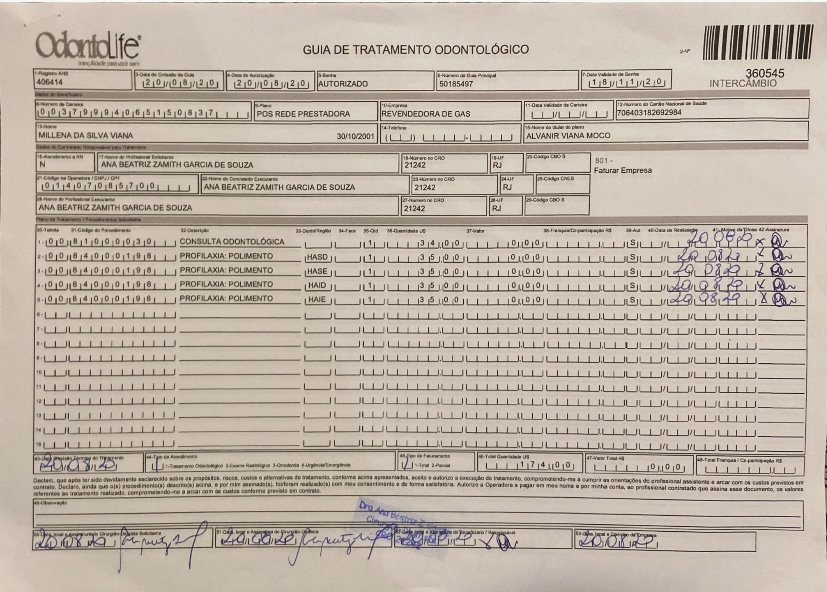 OdontoLife®
GUIA DE TRATAMENTO ODONTOLÓGICO
2-Nº
360545
INTERCÂMBIO
1-Registro ANS 3-Data de Emissão da Guia 4-Data de Autorização 5-Senha 6-Número da Guia Principal 7-Data Validade da Senha
406414 20/08/20 20/08/20 AUTORIZADO 50185497 18/11/20
Dados do Beneficiário
8-Número da Carteira 9-Plano 10-Empresa 11-Data Validade da Carteira 12-Número do Cartão Nacional de Saúde
00379994065150837 POS REDE PRESTADORA REVENDEDORA DE GAS 706403182692984
13-Nome 14-Telefone 15-Nome do titular do plano
MILLENA DA SILVA VIANA 30/10/2001 ALVANIR VIANA MOCO
Dados do Contratado Responsável pelo Tratamento
16-Atendimento a RN 17-Nome do Profissional Solicitante 18-Número no CRO 19-UF 20-Código CBO S
N ANA BEATRIZ ZAMITH GARCIA DE SOUZA 21242 RJ
801 -
Faturar Empresa
21-Código na Operadora / CNPJ / CPF 22-Nome do Contratado Executante 23-Número no CRO 24-UF 25-Código CNES
01407085700 ANA BEATRIZ ZAMITH GARCIA DE SOUZA 21242 RJ
26-Nome do Profissional Executante 27-Número no CRO 28-UF 29-Código CBO S
ANA BEATRIZ ZAMITH GARCIA DE SOUZA 21242 RJ
Plano de Tratamento / Procedimentos Solicitados
30-Tabela 31-Código do Procedimento 32-Descrição 33-Dente/Região 34-Face 35-Qtd 36-Quantidade US 37-Valor 38-Franquia/Co-participação R$ 39-Aut 40-Data de Realização 42-Assinatura
1- 00 81000030 CONSULTA ODONTOLÓGICA 1 34,00 0,00 S 20/08/20 x
2- 00 84000198 PROFILAXIA: POLIMENTO HASD 1 35,00 0,00 S 20/08/20 x
3- 00 84000198 PROFILAXIA: POLIMENTO HASE 1 35,00 0,00 S 20/08/20 x
4- 00 84000198 PROFILAXIA: POLIMENTO HAID 1 35,00 0,00 S 20/08/20 x
5- 00 84000198 PROFILAXIA: POLIMENTO HAIE 1 35,00 0,00 S 20/08/20 x
6-
7-
8-
9-
10
11
12
13
14
15
43-Data Previsão Término do Tratamento 44-Tipo de Atendimento 45-Tipo de Faturamento 46-Total Quantidade US 47-Valor Total R$ 48-Total Franquia / Co-participação R$
20/08/20 1 1-Tratamento Odontológico 2-Exame Radiológico 3-Ortodontia 4-Urgência/Emergência 1 1-Total 2-Parcial 174,00 0,00
Declaro, que após ter sido devidamente esclarecido sobre os propósitos, riscos, custos e alternativas de tratamento, conforme acima apresentados, aceito e autorizo a execução do tratamento, comprometendo-me a cumprir as orientações do profissional assistente e arcar com os custos previstos em
contrato. Declaro, ainda que o(s) procedimento(s) descrito(s) acima, e por mim assinado(s), foi/foram realizado(s) com meu consentimento e de forma satisfatória. Autorizo a Operadora a pagar em meu nome e por minha conta, ao profissional contratado que assina esse documento, os valores
referentes ao tratamento realizado, comprometendo-me a arcar com os custos conforme previsto em contrato.
49-Observação
Dra Ana Beatriz
50-Data, local e Assinatura do Cirurgião-Dentista Solicitante 51-Data, local e Assinatura do Cirurgião-Dentista
20/08/20 20/08/20 20/08/20 x 20/08/20